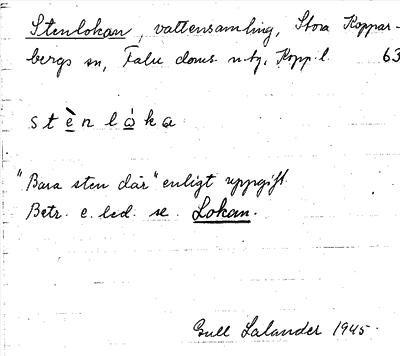 Stenlokan, vattensamling, Stora Koppar-
bergs sn, Falu doms. n. tg, Kopp. l. 63
st è n l ò k a
"Bara sten där" enligt uppgift.
Betr. e. led. se. Lokan.
Gull Lalander 1945.